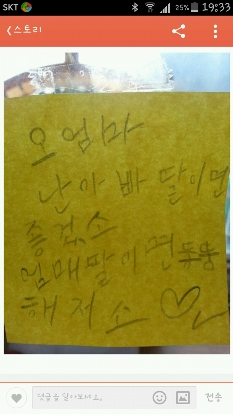 SKT 25% 19:33
스토리
오 엄마
난 아빠 딸이면
좋겠소
해저소
댓글을 달아보세요.
전송